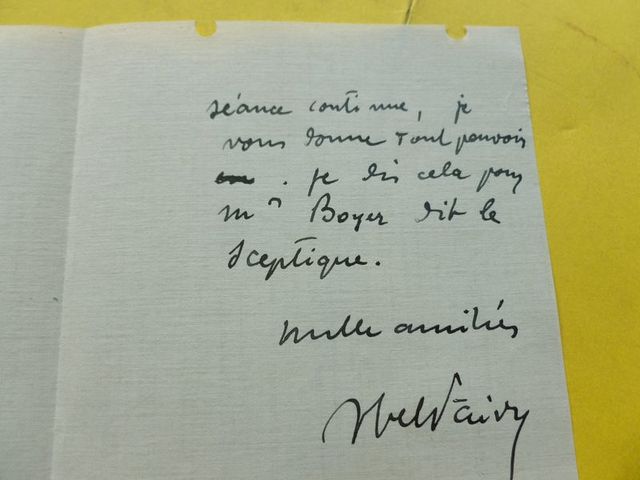 séance continue, je
vous donne tout pouvoir
. je dis cela pour
Mr Boyer dit le
Sceptique.
mille amitiés